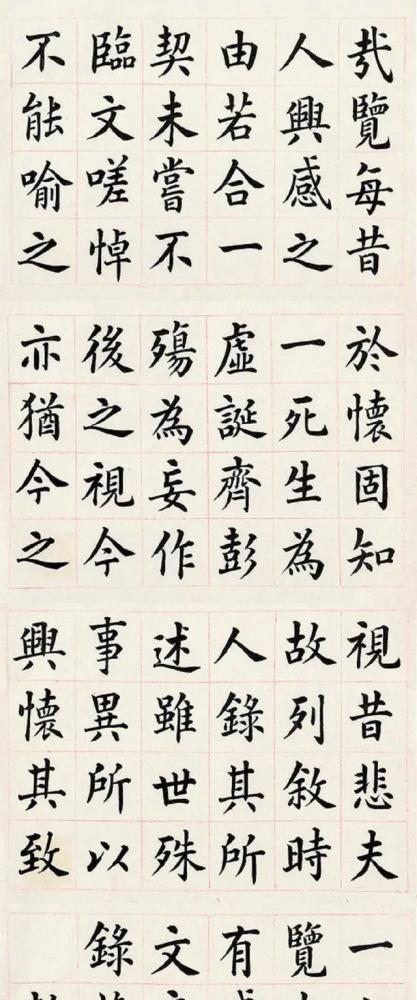 哉覽每昔
人興感之
由若合一
契未嘗不
臨文嗟悼
不能喻之
於懷固知
一死生為
虛誕齊彭
殤為妄作
後之視今
亦猶今之
視昔悲夫
故列敘時
人錄其所
述雖世殊
事異所以
興懷其致
一
覽
有
文
錄